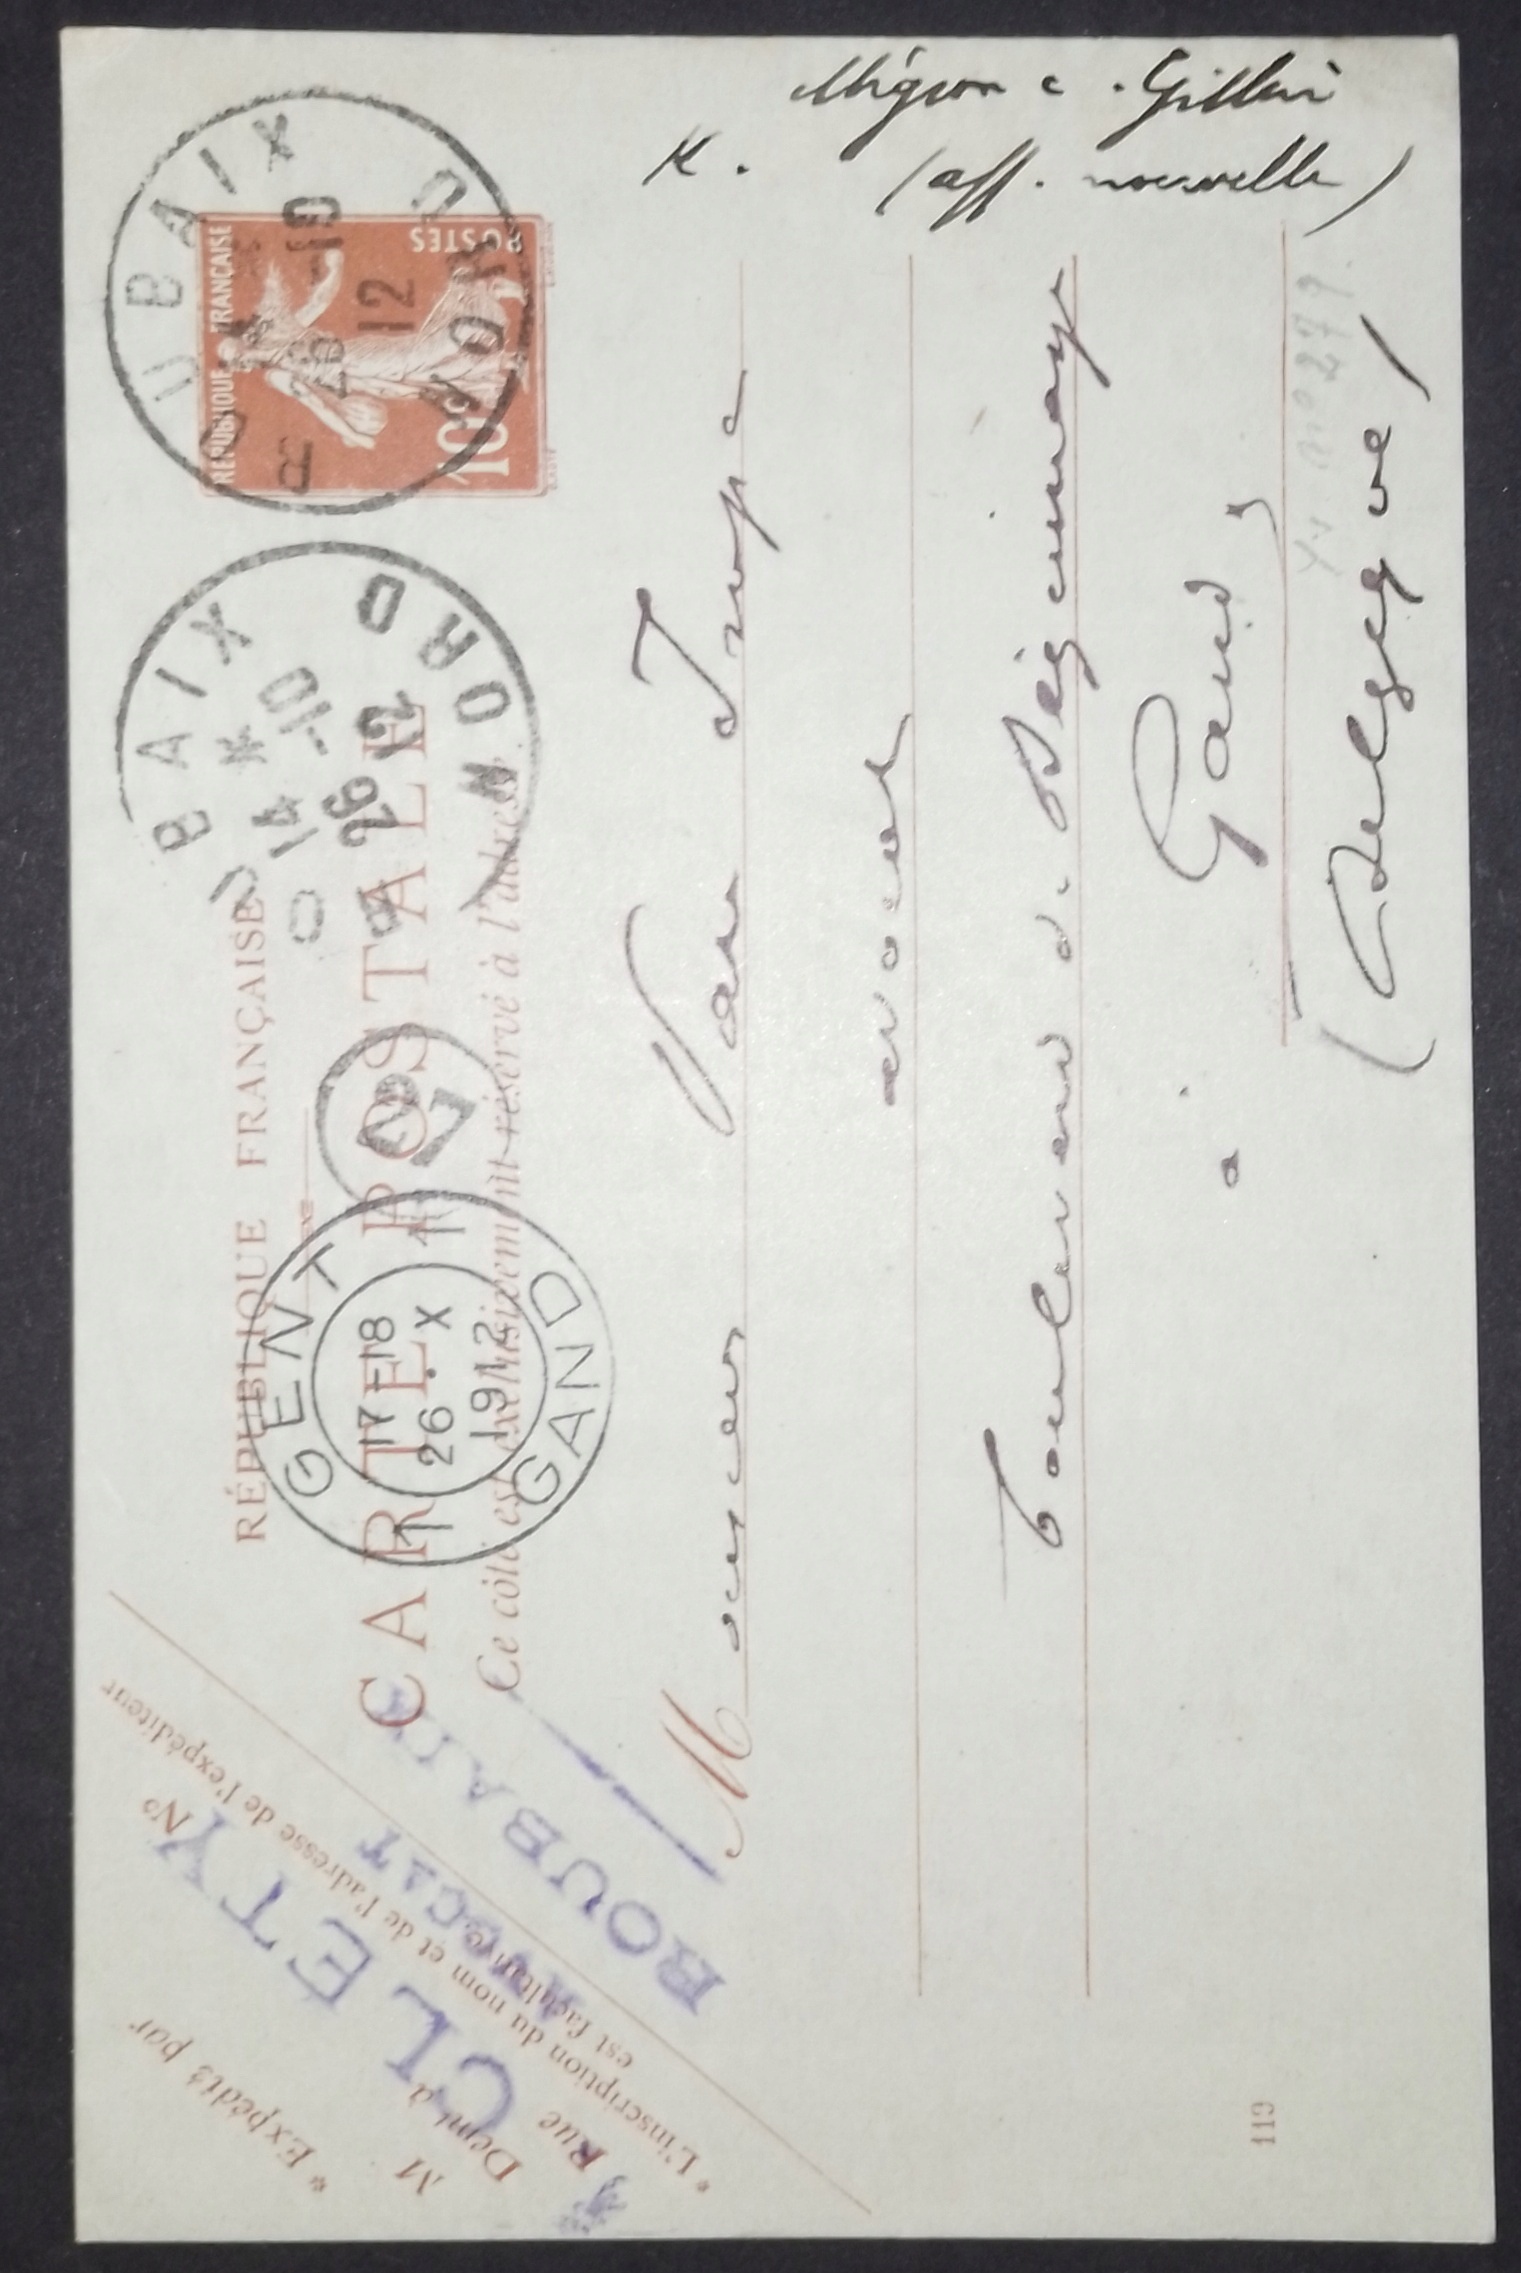 Mignon c. Gilbin
(aff. nouvelle)
K.
RÉPUBLIQUE FRANÇAISE
CARTE POSTALE
Ce côté est exclusivement réservé à l'adresse
RÉPUBLIQUE FRANÇAISE
POSTES
10c
ROUBAIX
26 -10
12
NORD
ROUBAIX
14 * 
26 -10
12
NORD
GENT
17-18
26 . X
1912
GAND
1
1
* Expédié par
M
Demt à
Rue
Nº
* L'inscription du nom et de l'adresse de l'expéditeur
est facultative.
CLETY
AVOCAT
ROUBAIX
Monsieur Van
avocat
Boulevard d.
à Gand,
(Belgique)
119